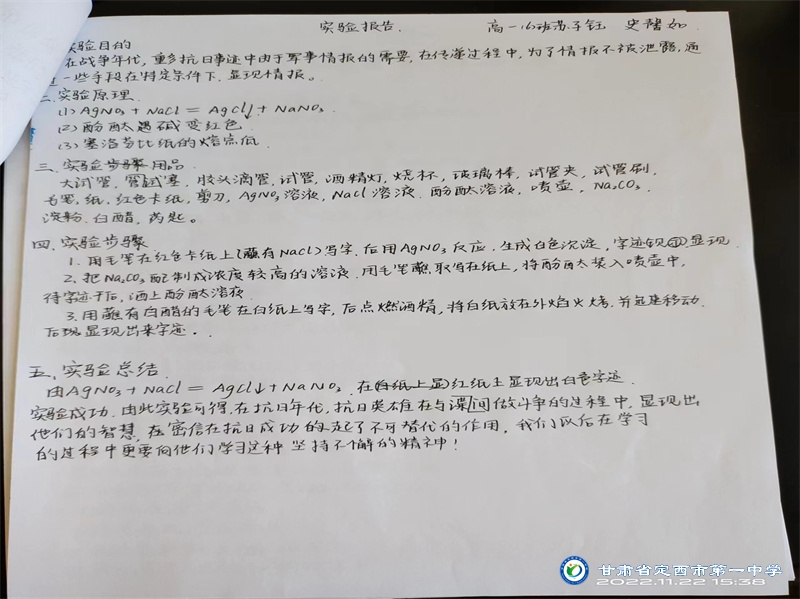 实验报告. 高一16班苏子钰 史馨如
实验目的
在战争年代，重多抗日事迹中由于军事情报的需要，在传递过程中，为了情报不被泄露，通
一些手段在特定条件下，显现情报。
二.实验原理.
(1) AgNO₃ + NaCl = AgCl↓ + NaNO₃.
(2) 酚酞遇碱变红色.
(3) 塞洛芬比纸的熔点低
三. 实验步骤用品.
大试管，胶头滴管，试管，酒精灯，烧杯，玻璃棒，试管夹，试管刷，
毛笔，纸，红色卡纸，剪刀，AgNO₃溶液，NaCl溶液，酚酞溶液，喷壶，Na₂CO₃，
淀粉，白醋，药匙。
四. 实验步骤
1. 用毛笔在红色卡纸上(蘸有NaCl)写字，后用AgNO₃反应，生成白色沉淀，字迹显现.
2. 把Na₂CO₃配制成浓度较高的溶液，用毛笔蘸取写在纸上，将酚酞装入喷壶中，
待字迹干后，洒上酚酞溶液.
3. 用蘸有白醋的毛笔在白纸上写字，后点燃酒精，将白纸放在外焰火烤，并迅速移动.
后现显现出来字迹。
五. 实验总结.
由AgNO₃ + NaCl = AgCl↓ + NaNO₃. 在(白纸上显)红纸上显现出白色字迹.
实验成功. 由此实验可得，在抗日年代，抗日英雄在与间做斗争的过程中，显现出
他们的智慧，在密信在抗日成功的起了不可替代的作用，我们以后在学习
的过程中更要向他们学习这种坚持不懈的精神！
甘肃省定西市第一中学
2022.11.22 15:38